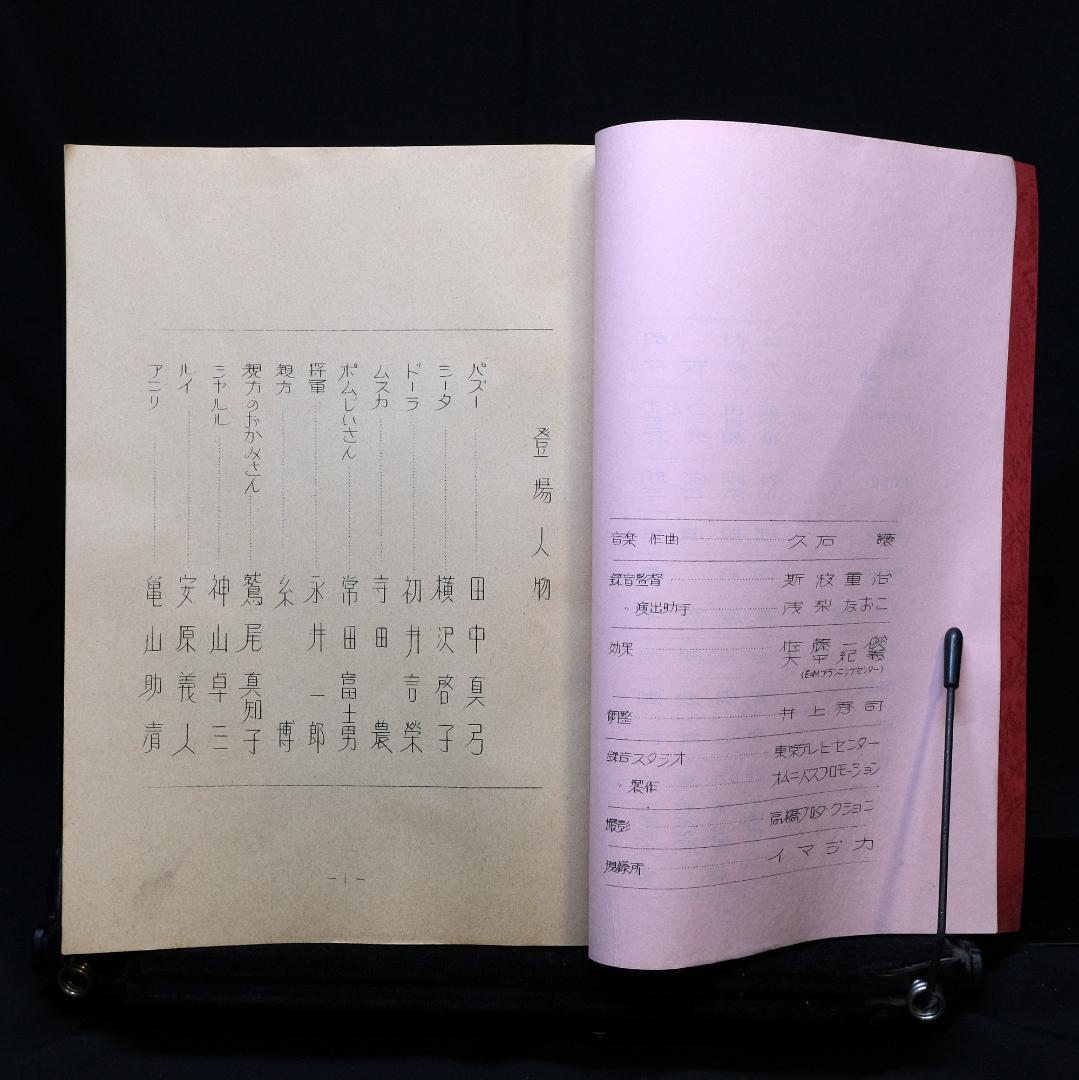 登場人物
パズー 田中真弓
シータ 横沢啓子
ドーラ 初井言榮
ムスカ 寺田農
ポムじいさん 常田富士男
将軍 永井一郎
親方 糸博
親方のおかみさん 鷲尾真知子
シャルル 神山卓三
ルイ 安原義人
アンリ 亀山助清
-1-
音楽 作曲 久石 譲
録音監督 斯波重治
〃 演出助手 浅梨なおこ
効果 佐藤一俊
大平紀義
(E&Mプランニングセンター)
調整 井上秀司
録音スタジオ 東京テレビセンター
〃 製作 オムニバスプロモーション
撮影 高橋プロダクション
現像所 イマジカ